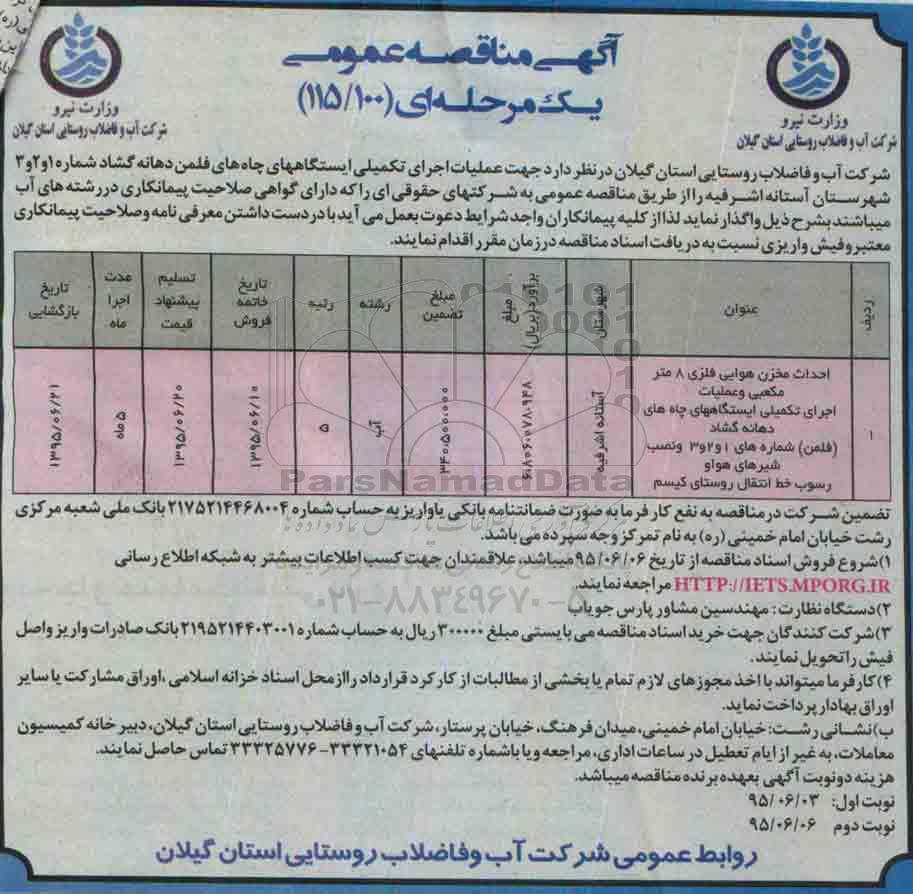 آگهی مناقصه عمومی
یک مرحله‌ای (۱۱۵/۱۰۰)
وزارت نیرو
شرکت آب و فاضلاب روستایی استان گیلان
وزارت نیرو
شرکت آب و فاضلاب روستایی استان گیلان
شرکت آب و فاضلاب روستایی استان گیلان در نظر دارد جهت عملیات اجرای تکمیلی ایستگاههای چاه های فلمن دهانه گشاد شماره ۱و۲و۳
شهرستان آستانه اشرفیه را از طریق مناقصه عمومی به شرکتهای حقوقی ای را که دارای گواهی صلاحیت پیمانکاری در رشته های آب
میباشند بشرح ذیل واگذار نماید لذا از کلیه پیمانکاران واجد شرایط دعوت بعمل می آید با در دست داشتن معرفی نامه و صلاحیت پیمانکاری
معتبر و فیش واریزی نسبت به دریافت اسناد مناقصه در زمان مقرر اقدام نمایند.
ردیف
عنوان
شهرستان
مبلغ برآورد (بریال)
مبلغ تضمین
رشته
رتبه
تاریخ خاتمه فروش
تسلیم پیشنهاد قیمت
مدت اجرا ماه
تاریخ بازگشایی
۱
احداث مخزن هوایی فلزی ۸ متر
مکعبی وعملیات
اجرای تکمیلی ایستگاههای چاه های
دهانه گشاد
(فلمن) شماره های ۱و۲و۳ ونصب
شیرهای هوا و
رسوب خط انتقال روستای کیسم
آستانه اشرفیه
۶.۸۰۶.۰۷۸.۹۴۸
۳۴۰.۵۰۰.۰۰۰
آب
۵
۱۳۹۵/۰۶/۱۰
۱۳۹۵/۰۶/۲۰
۵ماه
۱۳۹۵/۰۶/۲۱
ParsNamadData
تضمین شرکت در مناقصه به نفع کارفرما به صورت ضمانتنامه بانکی یا واریز به حساب شماره ۲۱۷۵۲۱۴۴۶۸۰۰۴ بانک ملی شعبه مرکزی
رشت خیابان امام خمینی (ره) به نام تمرکز وجه سپرده می باشد.
۱)شروع فروش اسناد مناقصه از تاریخ ۹۵/۰۶/۰۶ میباشد، علاقمندان جهت کسب اطلاعات بیشتر به شبکه اطلاع رسانی
HTTP://IETS.MPORG.IR مراجعه نمایند.
۰۲۱-۸۸۳۴۹۶۷۰-۵
۲)دستگاه نظارت: مهندسین مشاور پارس جویاب
۳)شرکت کنندگان جهت خرید اسناد مناقصه می بایستی مبلغ ۳۰۰۰۰۰ ریال به حساب شماره ۲۱۹۵۲۱۴۴۰۳۰۰۱ بانک صادرات واریز واصل
فیش را تحویل نمایند.
۴)کارفرما میتواند با اخذ مجوزهای لازم تمام یا بخشی از مطالبات از کارکرد قرارداد را از محل اسناد خزانه اسلامی ،اوراق مشارکت یا سایر
اوراق بهادار پرداخت نماید.
ب)نشانی رشت: خیابان امام خمینی، میدان فرهنگ، خیابان پرستار، شرکت آب و فاضلاب روستایی استان گیلان، دبیر خانه کمیسیون
معاملات، به غیر از ایام تعطیل در ساعات اداری، مراجعه و یا با شماره تلفنهای ۳۳۳۲۱۰۵۴-۳۳۳۲۵۷۷۶ تماس حاصل نمایند.
هزینه دو نوبت آگهی بعهده برنده مناقصه میباشد.
نوبت اول: ۹۵/۰۶/۰۳
نوبت دوم ۹۵/۰۶/۰۶
روابط عمومی شرکت آب و فاضلاب روستایی استان گیلان